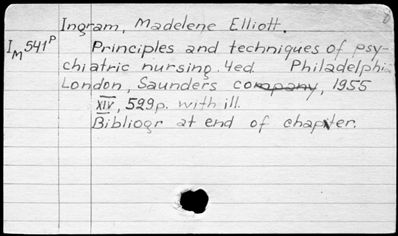 Ingram, Madelene Elliott.
I M 541 P Principles and techniques of psy-
chiatric nursing. 4ed. Philadelphia
London, Saunders company, 1955
XIV, 529p. with ill.
Bibliogr at end of chapter.